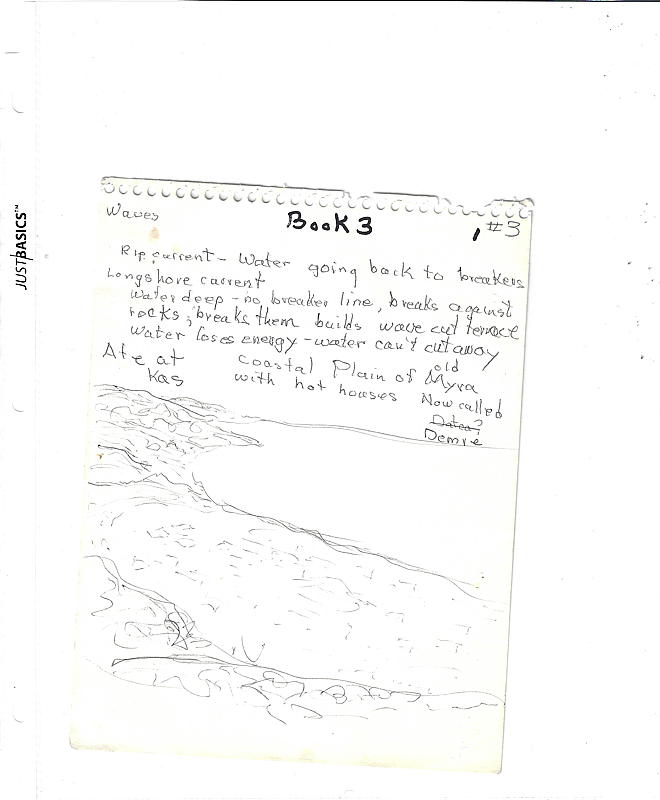 JUSTBASICS™
Waves
Book 3
, #3
Rip current - Water going back to breakers
Longshore current
Water deep - no breaker line, breaks against
rocks, breaks them builds wave cut terrace
Water loses energy - water can't cut away
Ate at
Kas
Coastal Plain of old Myra
with hot houses Now called
Datca?
Demre